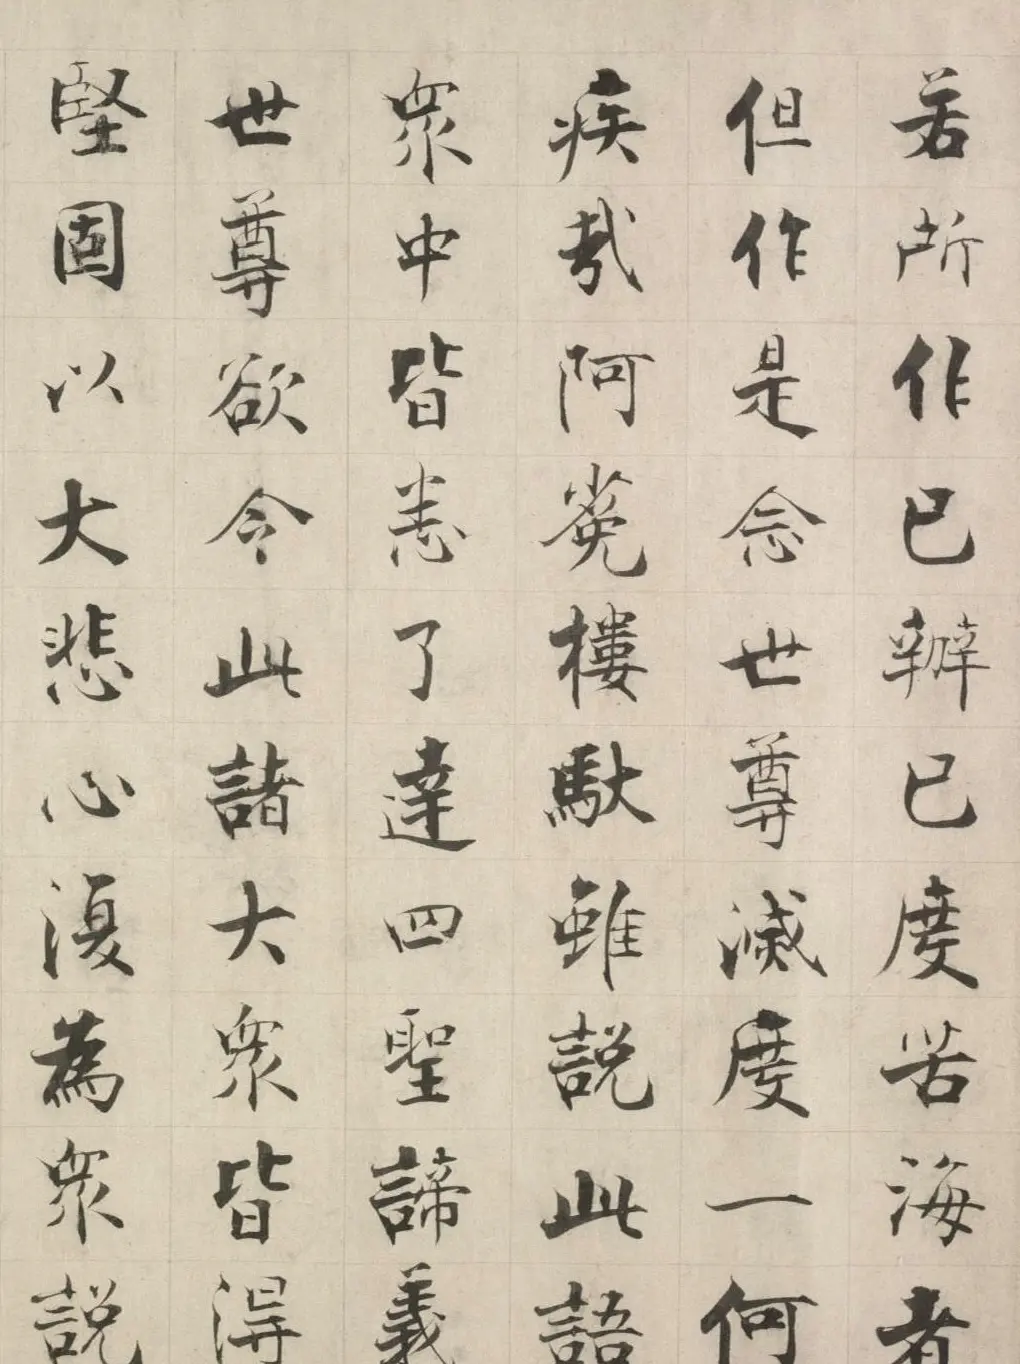 若所作已辦已度苦海者
但作是念世尊滅度一何
疾哉阿㝹樓馱雖說此語
衆中皆悉了達四聖諦義
世尊欲令此諸大衆皆得
堅固以大悲心復為衆說